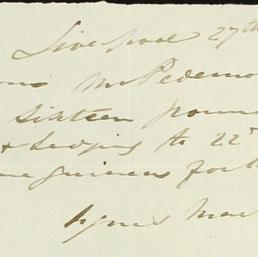 Liverpool 27th
Mr Pedemo
Sixteen poun
& Lodging to 22d
ne guineas for
Agnes Mac